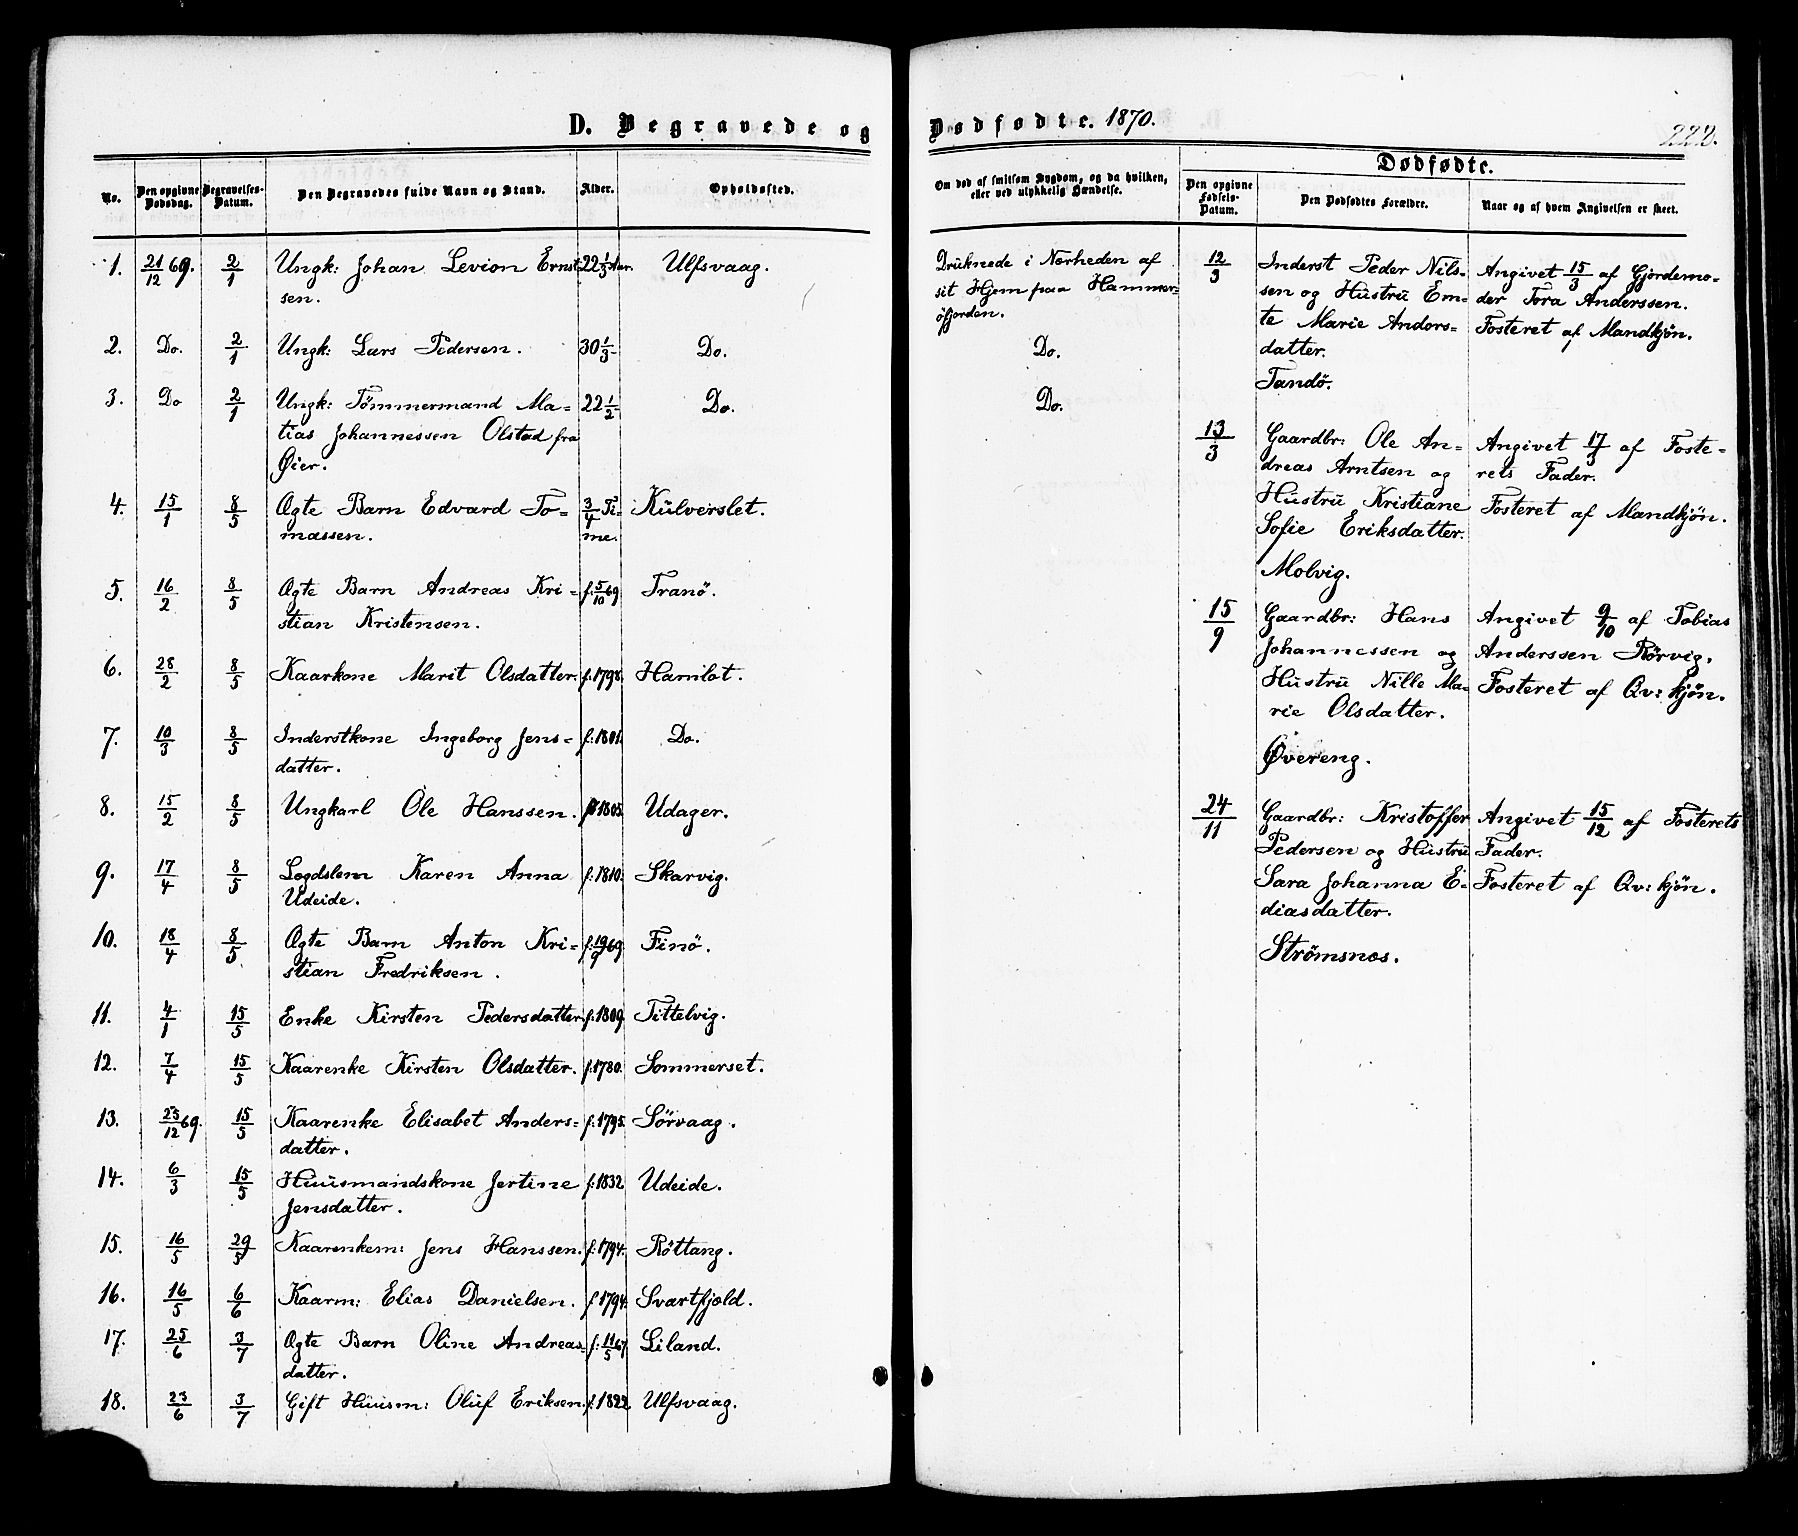 D. Begravede og
No. Den opgivne Dødsdag. Begravelses-Datum. Den Begravedes fulde Navn og Stand. Alder. Opholdssted.
1. 21/12 69. 2/1 Ungk: Johan Levion Ernst- 22 1/3 Aar. Ulfsvaag.
sen.
2. Do. 2/1 Ungk: Lars Pedersen. 30 1/3 - Do.
3. Do 2/1 Ungk: Tömmermand Ma- 22 1/2 - Do.
tias Johannessen Olstad fra
Øier.
4. 15/1 8/5 Ægte Barn Edvard To- 3/4 Ti- Külverslet.
massen. me.
5. 16/2 8/5 Ægte Barn Andreas Kri- f: 5/10 69 Tranö.
stian Kristensen.
6. 28/2 8/5 Kaarkone Marit Olsdatter. f: 1798. Hamlot.
7. 10/3 8/5 Inderstkone Ingeborg Jens- f: 1801. Do.
datter.
8. 15/2 8/5 Ungkarl Ole Hanssen. f: 1805. Udager.
9. 17/4 8/5 Lægdslem Karen Anna f: 1810. Skarvig.
Udeide.
10. 18/4 8/5 Ægte Barn Anton Kri- f: 19/9 69. Finö.
stian Fredriksen.
11. 4/1 15/5 Enke Kirsten Pedersdatter. f: 1809. Tittelvig.
12. 7/4 15/5 Kaarenke Kirsten Olsdatter. f: 1780. Sommerset.
13. 25/12 69. 15/5 Kaarenke Elisabet Anders- f: 1795. Sörvaag.
datter.
14. 6/3 15/5 Huusmandskone Jertine f: 1832 Udeide.
Jensdatter.
15. 16/5 29/5 Kaarenkem: Jens Hanssen. f: 1794. Röttang.
16. 16/5 6/6 Kaarm: Elias Danielsen. f 1794. Svartfjeld.
17. 25/6 3/7 Ægte Barn Oline Andreas- f: 11/5 67. Liland.
datter.
18. 23/6 3/7 Gift Huusm: Oluf Eriksen. f: 1822. Ulfsvaag.
Dødfødte. 1870.
222.
Om død af smitsom Sygdom, og da hvilken, eller ved ulykkelig Hændelse.
Dødfødte.
Den opgivne Fødsels-Datum. Den Dødfødtes Forældre. Naar og af hvem Angivelsen er skeet.
Druknede i Nærheden af
sit Hjem paa Hammer-
öfjorden.
Do.
Do.
12/3 Inderst Peder Nils- Angivet 15/3 af Gjordemo-
sen og Hustru Em- der Tora Anderssen.
te Marie Anders- Fosteret af Mandkjön.
datter.
Tandö.
13/3 Gaardbr: Ole An- Angivet 17/3 af Foste-
dreas Arntsen og rets Fader.
Hüstrü Kristiane Fosteret af Mandkjön.
Sofie Eriksdatter.
Molvig.
15/9 Gaardbr: Hans Angivet 9/10 af Tobias
Johannessen og Anderssen Rörvig.
Hustru Nille Ma- Fosteret af Qv: kjön.
rie Olsdatter.
Øvereng.
24/11 Gaardbr: Kristoffer Angivet 15/12 af Fosterets
Pedersen og Hustru Fader.
Sara Johanna E- Fosteret af Qv: kjön.
diasdatter.
Strömsnæs.